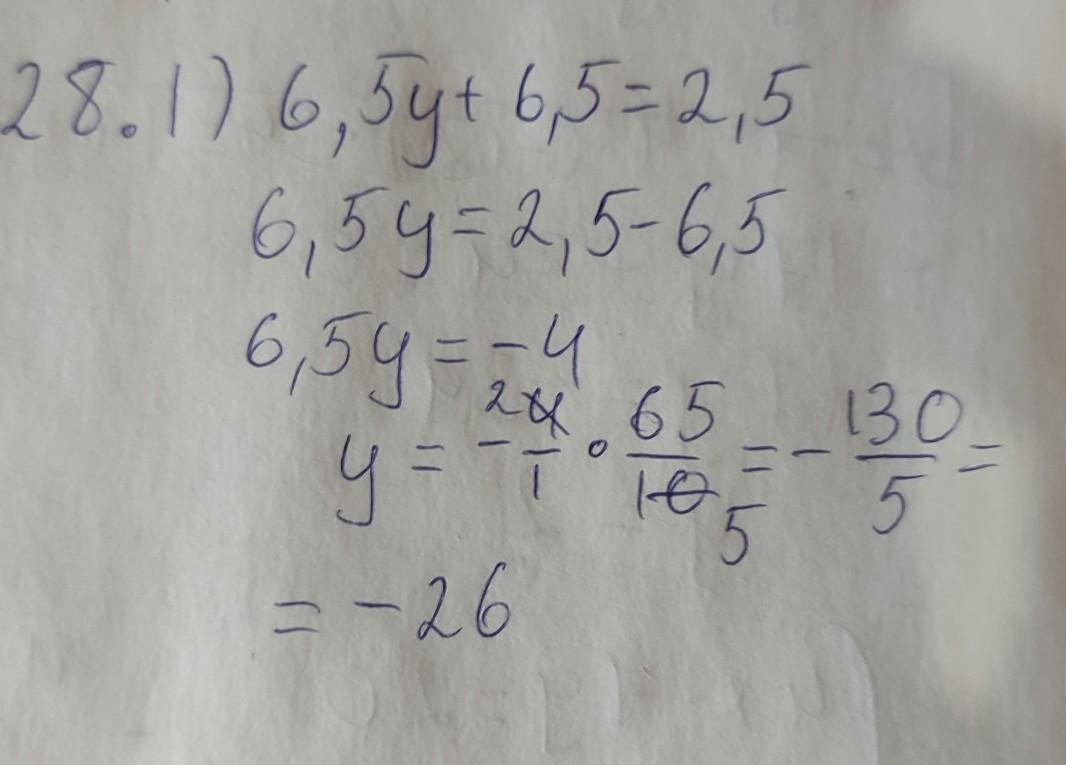 28.1) 6,5y + 6,5 = 2,5
6,5y = 2,5 - 6,5
6,5y = -4
y = - 2 4/1 · 65/10 5 = - 130/5 =
= - 26